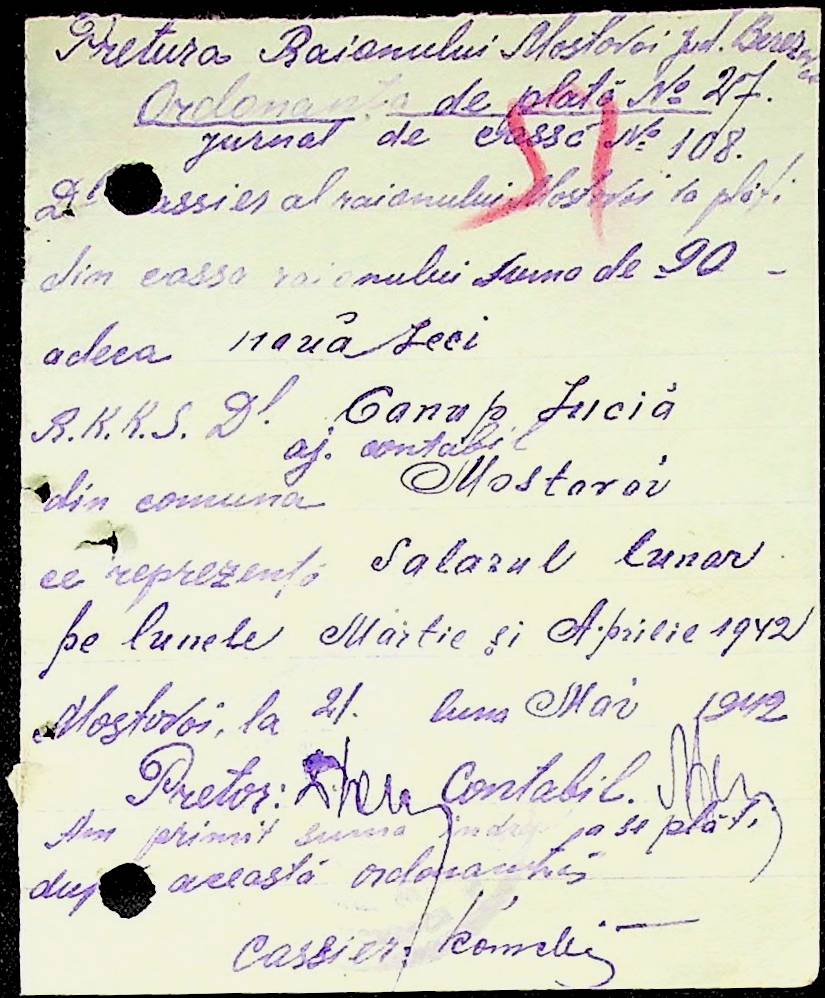 Pretura Raionului Mostovoi jud. Berezovca
Ordonanța de plată № 27.
jurnal de cassă № 108.
51
Dl cassier al raionului Mostovoi va plăti
din cassa raionului suma de 90 -
adeca nouă zeci
R.K.K.S. Dl.
aj. contabil
din comuna Mostovoi
ce reprezentă Salarul lunar
pe lunele Martie și Aprilie 1942
Mostovoi, la 21. luna Mai 1942
Pretor: Contabil.
Am primit suma se plăti
după această ordonanță
Cassier: